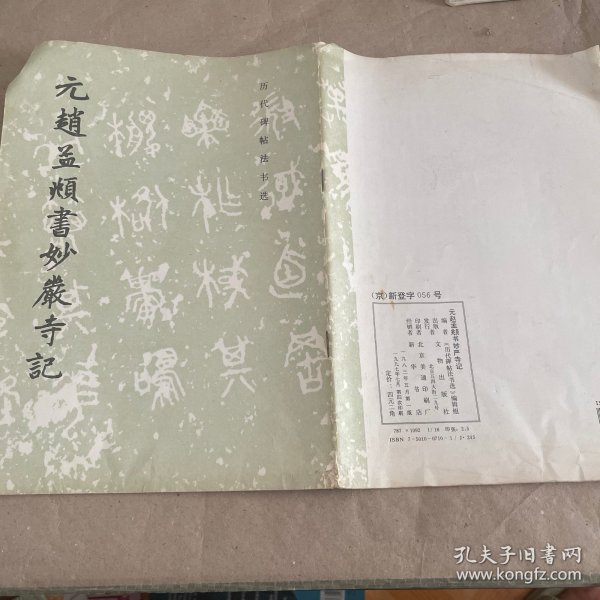 元趙孟頫書妙嚴寺記
历代碑帖法书选
(京)新登字056号
元赵孟頫书妙严寺记
编者 《历代碑帖法书选》编辑组
出版者 文物出版社
发行者 北京五四大街二九号
印刷者 北京美通印刷厂
经销者 新华书店
一九八二年五月第一版
一九九七年七月第四次印刷
定价：四元二角
787×1092 1/16 印张：2.5
ISBN 7-5010-0710-
孔夫子旧书网
www.kongfz.com